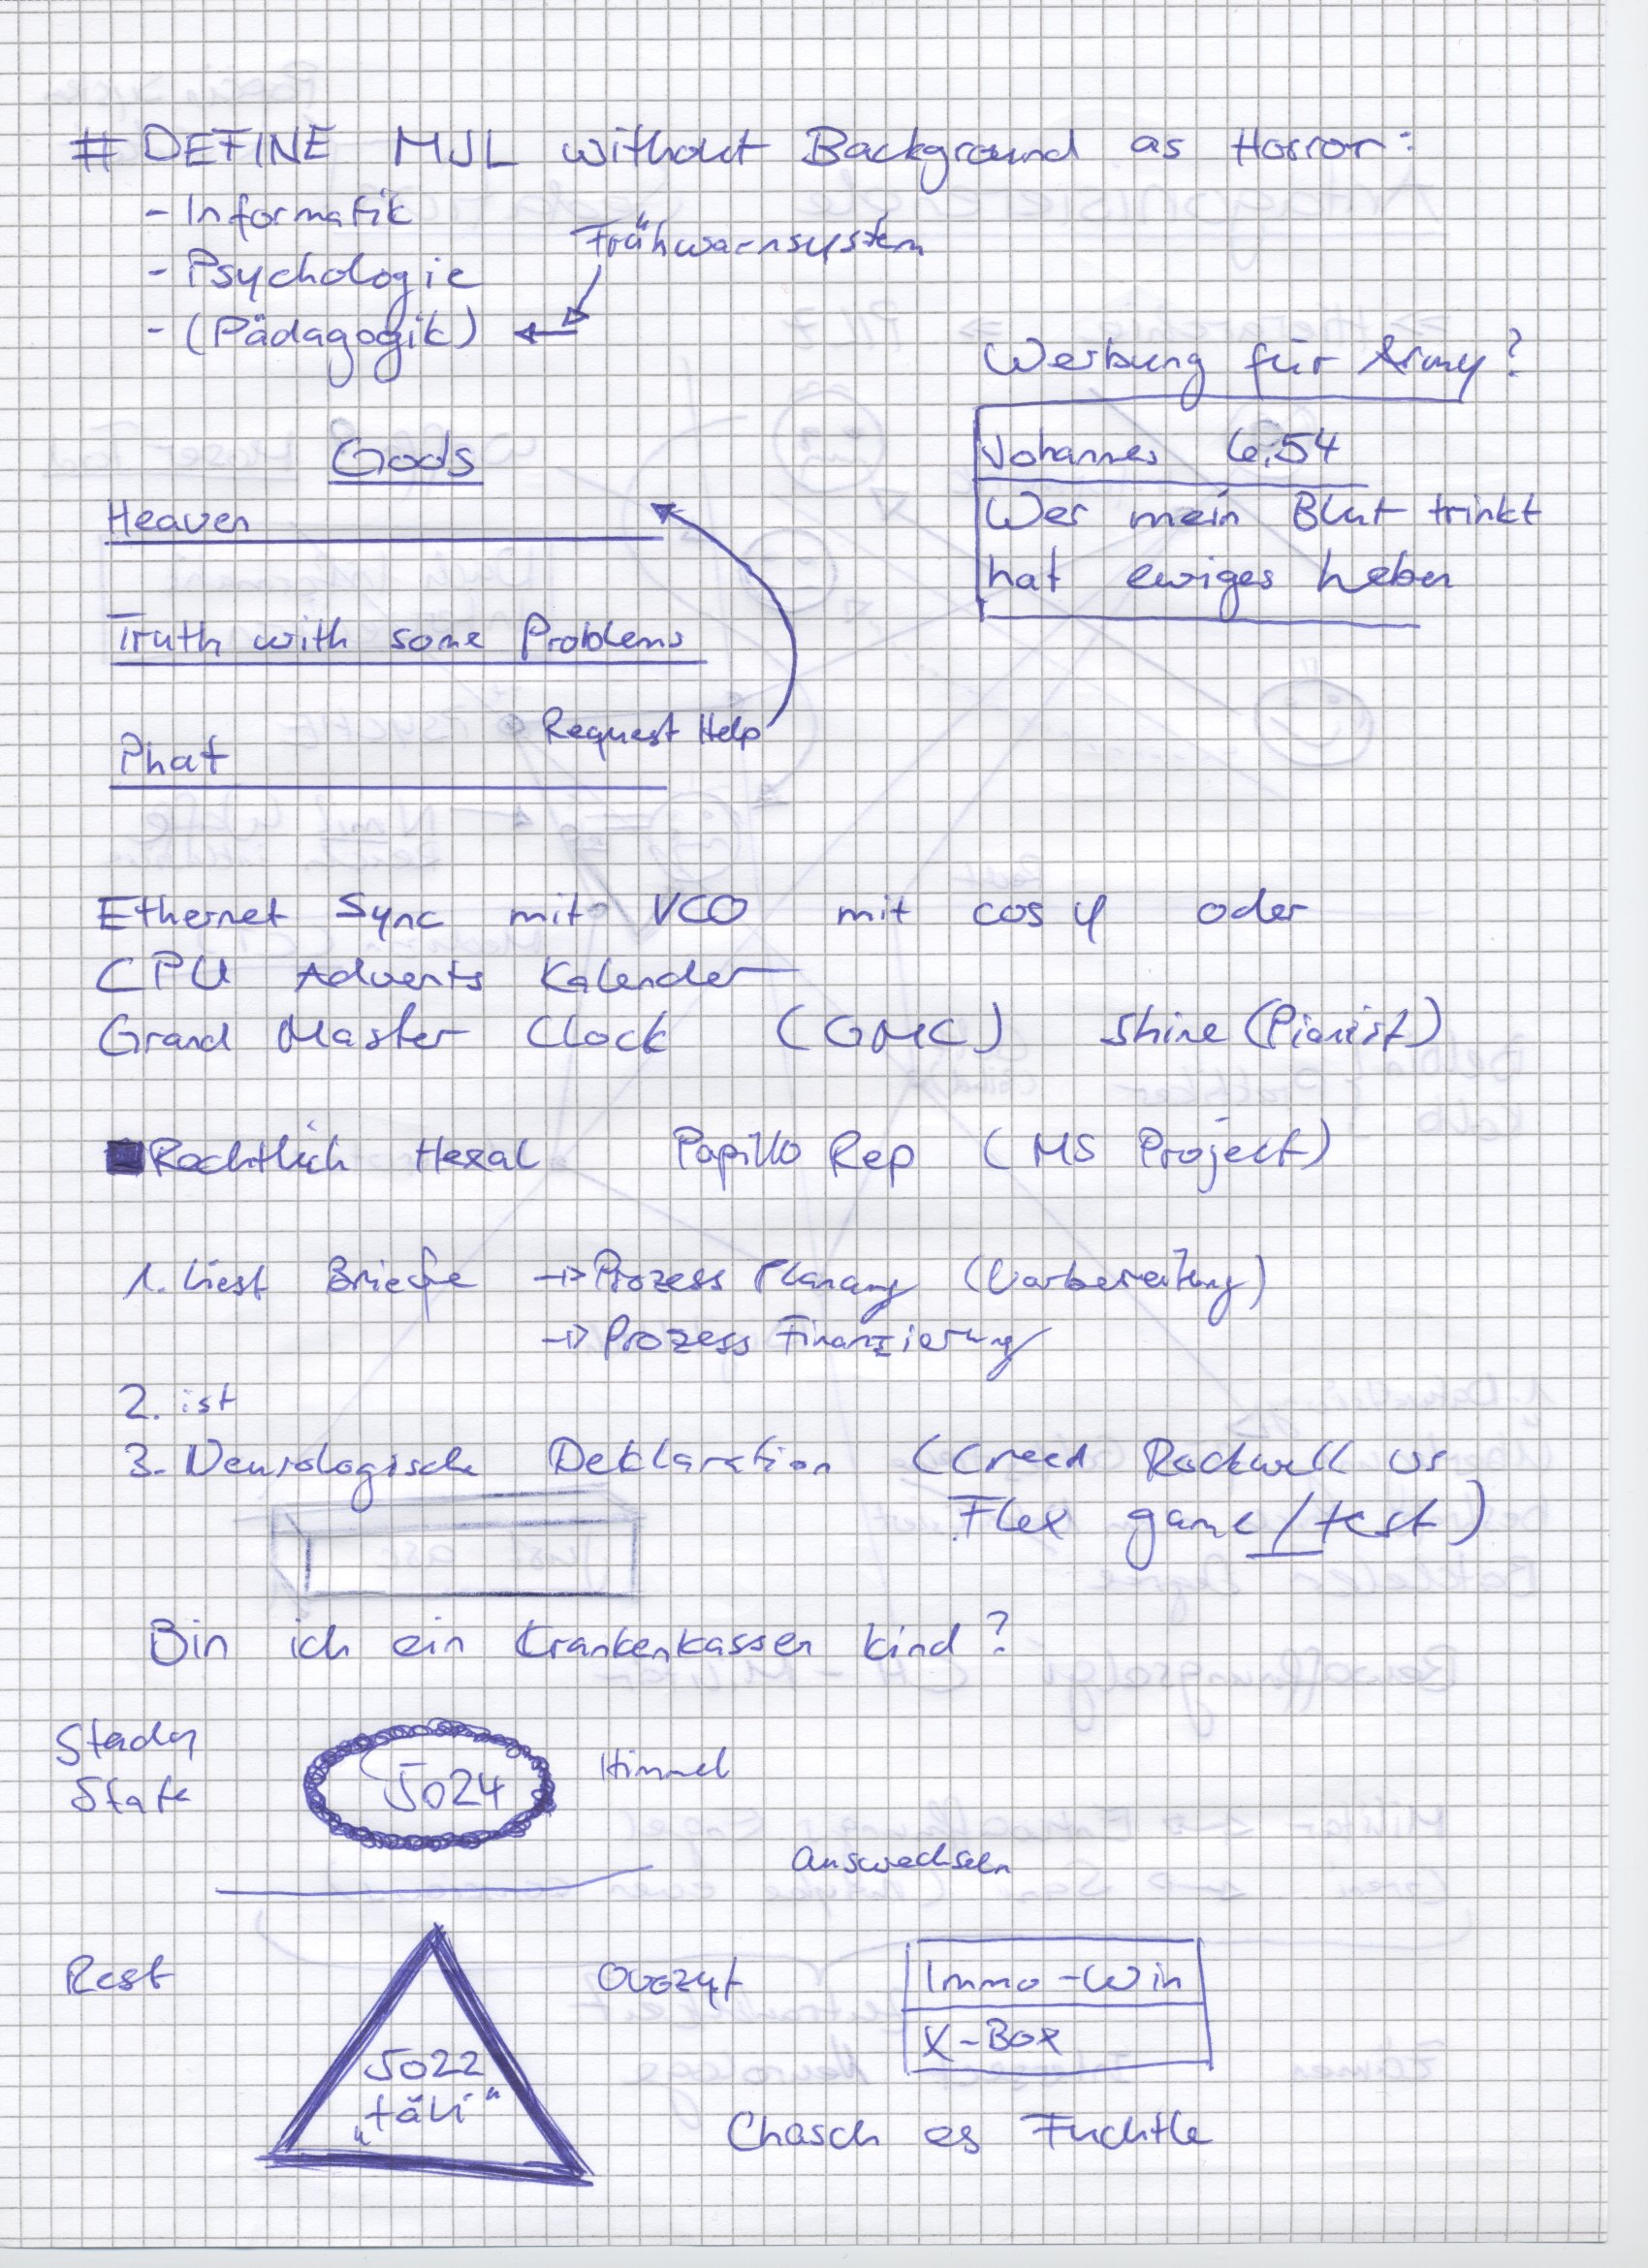 # DEFINE MJL without Background as Horror:
- Informatik
Frühwarnsystem
- Psychologie
- (Pädagogik)
Werbung für Army?
Johannes 6:54
Wer mein Blut trinkt
hat ewiges Leben
Gods
Heaven
Truth with some Problems
Request Help
Phat
Ethernet Sync mit VCO mit cos φ oder
CPU Advents Kalender
Grand Master Clock (GMC) Shine (Pianist)
Rechtlich Hexal Papillo Rep (MS Project)
1. Liest Briefe → Prozess Planung (Vorbereitung)
→ Prozess Finanzierung
2. ist
3. Neurologische Deklaration (Creed Rockwell vs
Flex game/test)
Bin ich ein Krankenkassen kind?
Steady
State
5024
Himmel
Auswechseln
Rest
5022
„täli“
Immo-Win
X-Box
Chasch es Fuchtle